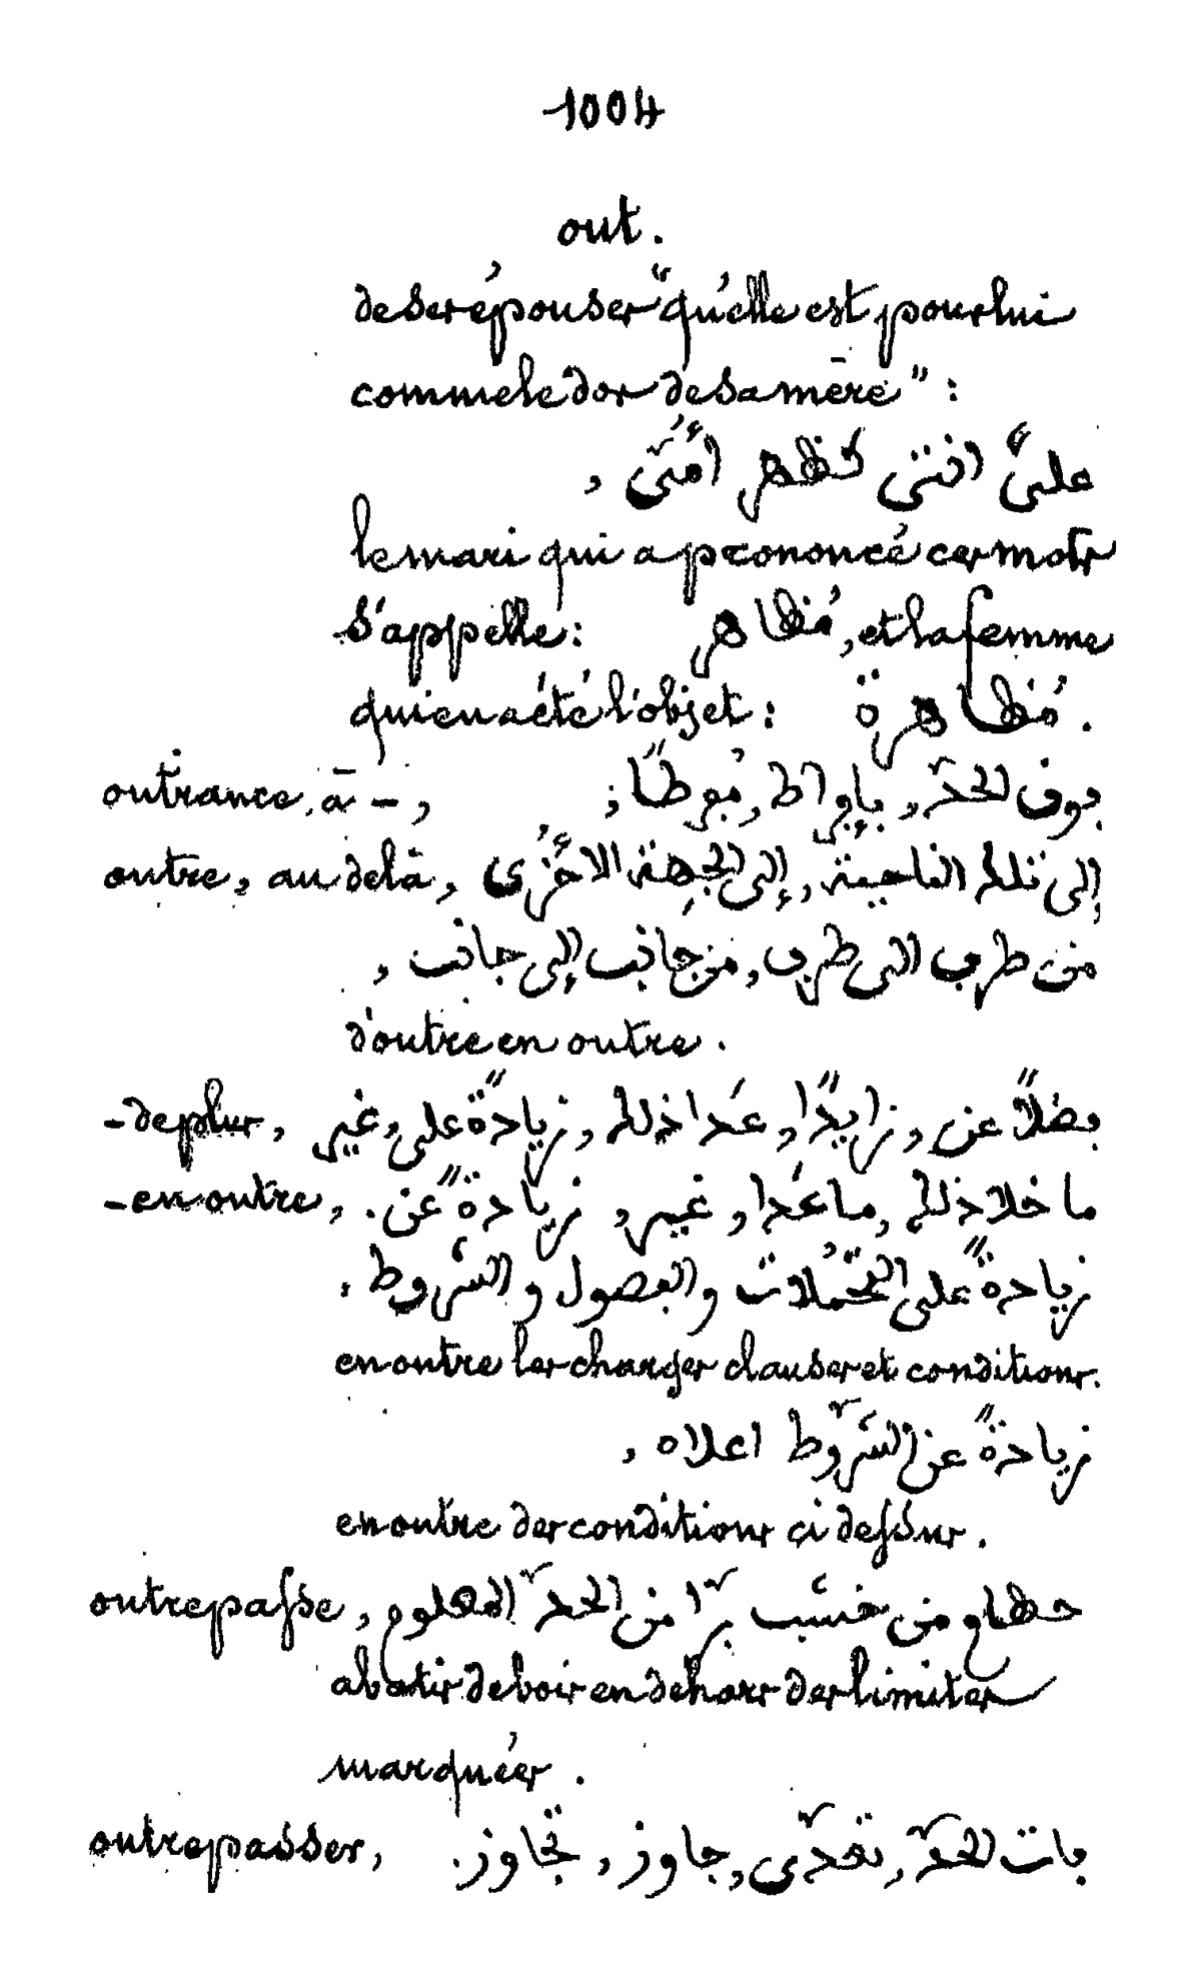 1004
out.
de se répouser "qu'elle est pour lui
comme le dor de sa mère" :
عليَّ انتى كظهر اُمّى ,
le mari qui a prononcé ces mots
s'appelle : مُظاهر, et la femme
qui en a été l'objet : مُظاهرة .
outrance, à - , ڢوف الحدّ, بإڢراط, مُڢرطًا ;
outre, au delà, إلى تلك الناحية, إلى الجِهة الاخُرى
من طرڢ الى طرڢ, من جانب إلى جانب ,
d'outre en outre .
- de plus, ڢضلاً عن, زايدًا, عَدا ذلك, زيادةً على, غير
- en outre, ما خلا ذلك, ما عَدا, غير, زيادةً عن .
زيادةً على التحمّلات والڢصول والشروط ,
en outre les charges clauses et conditions.
زيادةً عن الشروط اعلاه ,
en outre des conditions ci dessus .
outrepasse, خشب برّا من الحدّ المعلوم
abatis de bois en dehors des limites
marquées .
outrepasser, ڢات الحدّ, تعدّى, جاوز, تجاوز .